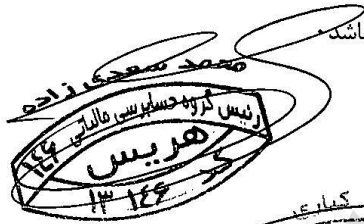 باشد.
محمد سعدی زاده
رئیس گروه حسابرسی مالیاتی
هریس
کد
۱۳ ۱۴۶